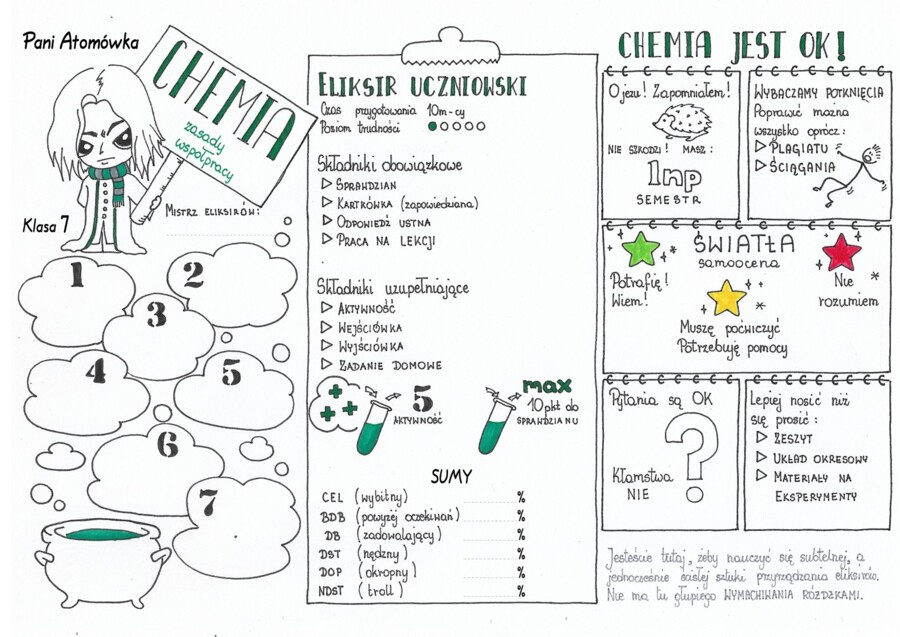 Pani Atomówka
CHEMIA
zasady
współpracy
Klasa 7
MISTRZ ELIKSIRÓW:
1
2
3
4
5
6
7
ELIKSIR UCZNIOWSKI
Czas przygotowania 10m-cy
Poziom trudności
Składniki obowiązkowe
SPRAWDZIAN
KARTKÓWKA (zapowiedziana)
ODPOWIEDŹ USTNA
PRACA NA LEKCJI
Składniki uzupełniające
AKTYWNOŚĆ
WEJŚCIÓWKA
WYJŚCIÓWKA
ZADANIE DOMOWE
5
AKTYWNOŚĆ
max
10 pkt do
SPRAWDZIANU
SUMY
CEL (wybitny) %
BDB (powyżej oczekiwań) %
DB (zadowalający) %
DST (nędzny) %
DOP (okropny) %
NDST (troll) %
CHEMIA JEST OK!
O jezu! Zapomniałem!
NIE SZKODZI! MASZ:
1np
SEMESTR
WYBACZAMY POTKNIĘCIA
Poprawić można
wszystko oprócz:
PLAGIATU
ŚCIĄGANIA
ŚWIATŁA
samoocena
Potrafię!
Wiem!
Nie
rozumiem
Muszę poćwiczyć
Potrzebuję pomocy
Pytania są OK
?
Kłamstwa
NIE
Lepiej nosić niż
się prosić:
ZESZYT
UKŁAD OKRESOWY
MATERIAŁY NA
EKSPERYMENTY
Jesteście tutaj, żeby nauczyć się subtelnej, a
jednocześnie ścisłej sztuki przyrządzania eliksirów.
Nie ma tu głupiego WYMACHIWANIA RÓŻDŻKAMI.